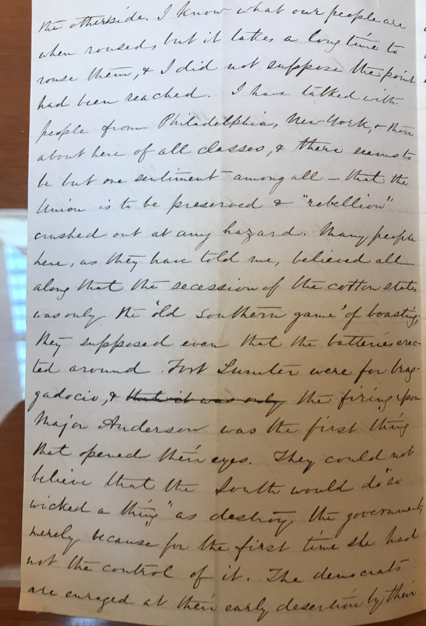 the otherside. I know what our people are
when roused, but it takes a long time to
rouse them, & I did not suppose the point
had been reached. I have talked with
people from Philadelphia, New York, & those
about here of all classes, & there seems to
be but one sentiment among all – that the
Union is to be preserved & "rebellion"
crushed out at any hazard. Many people
here, as they have told me, believed all
along that the secession of the cotton states
was only the "old Southern game" of boasting,
they supposed even that the batteries erec-
ted around Fort Sumter were for brag-
gadocio, & that it was only the firing upon
Major Anderson was the first thing
that opened their eyes. They could not
believe that the South would do "so
wicked a thing" as destroy the government
merely because for the first time she had
not the control of it. The democrats
are enraged at their early desertion by their